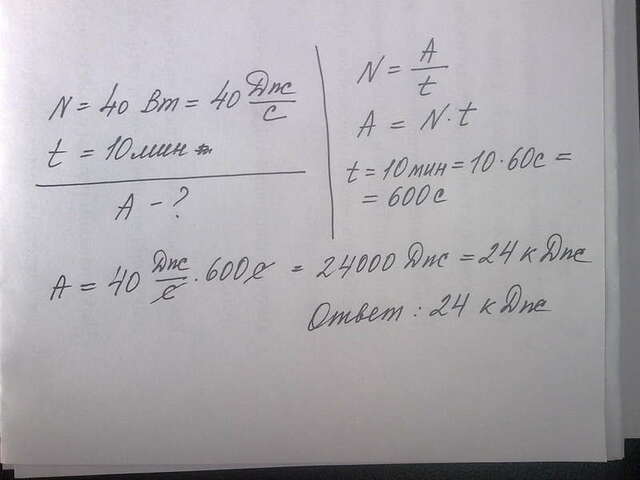 N = 40 Вт = 40 Дж/с
t = 10 мин
A - ?
N = A/t
A = N·t
t = 10 мин = 10·60 с =
= 600 с
A = 40 Дж/с · 600 с = 24000 Дж = 24 кДж
Ответ: 24 кДж